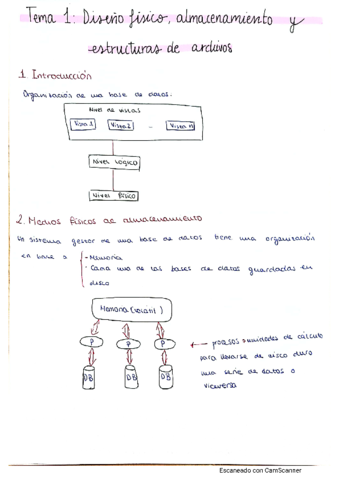 Tema 1: Diseño físico, almacenamiento y
estructuras de archivos
1. Introducción
Organización de una base de datos.
Nivel de vistas
Vista 1 Vista 2 ... Vista n
Nivel lógico
Nivel físico
2. Medios físicos de almacenamiento
Un sistema gestor de una base de datos tiene una organización
en base a
- Memoria
- Cada una de las bases de datos guardadas en
disco
Memoria (volátil)
P P P
DB DB DB
unidades de cálculo
para llevarse de disco duro
una serie de datos o
viceversa
Escaneado con CamScanner